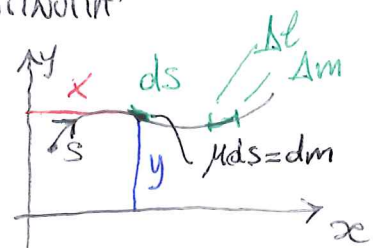 y
x
ds
Δl
Δm
S
y
μds=dm
x